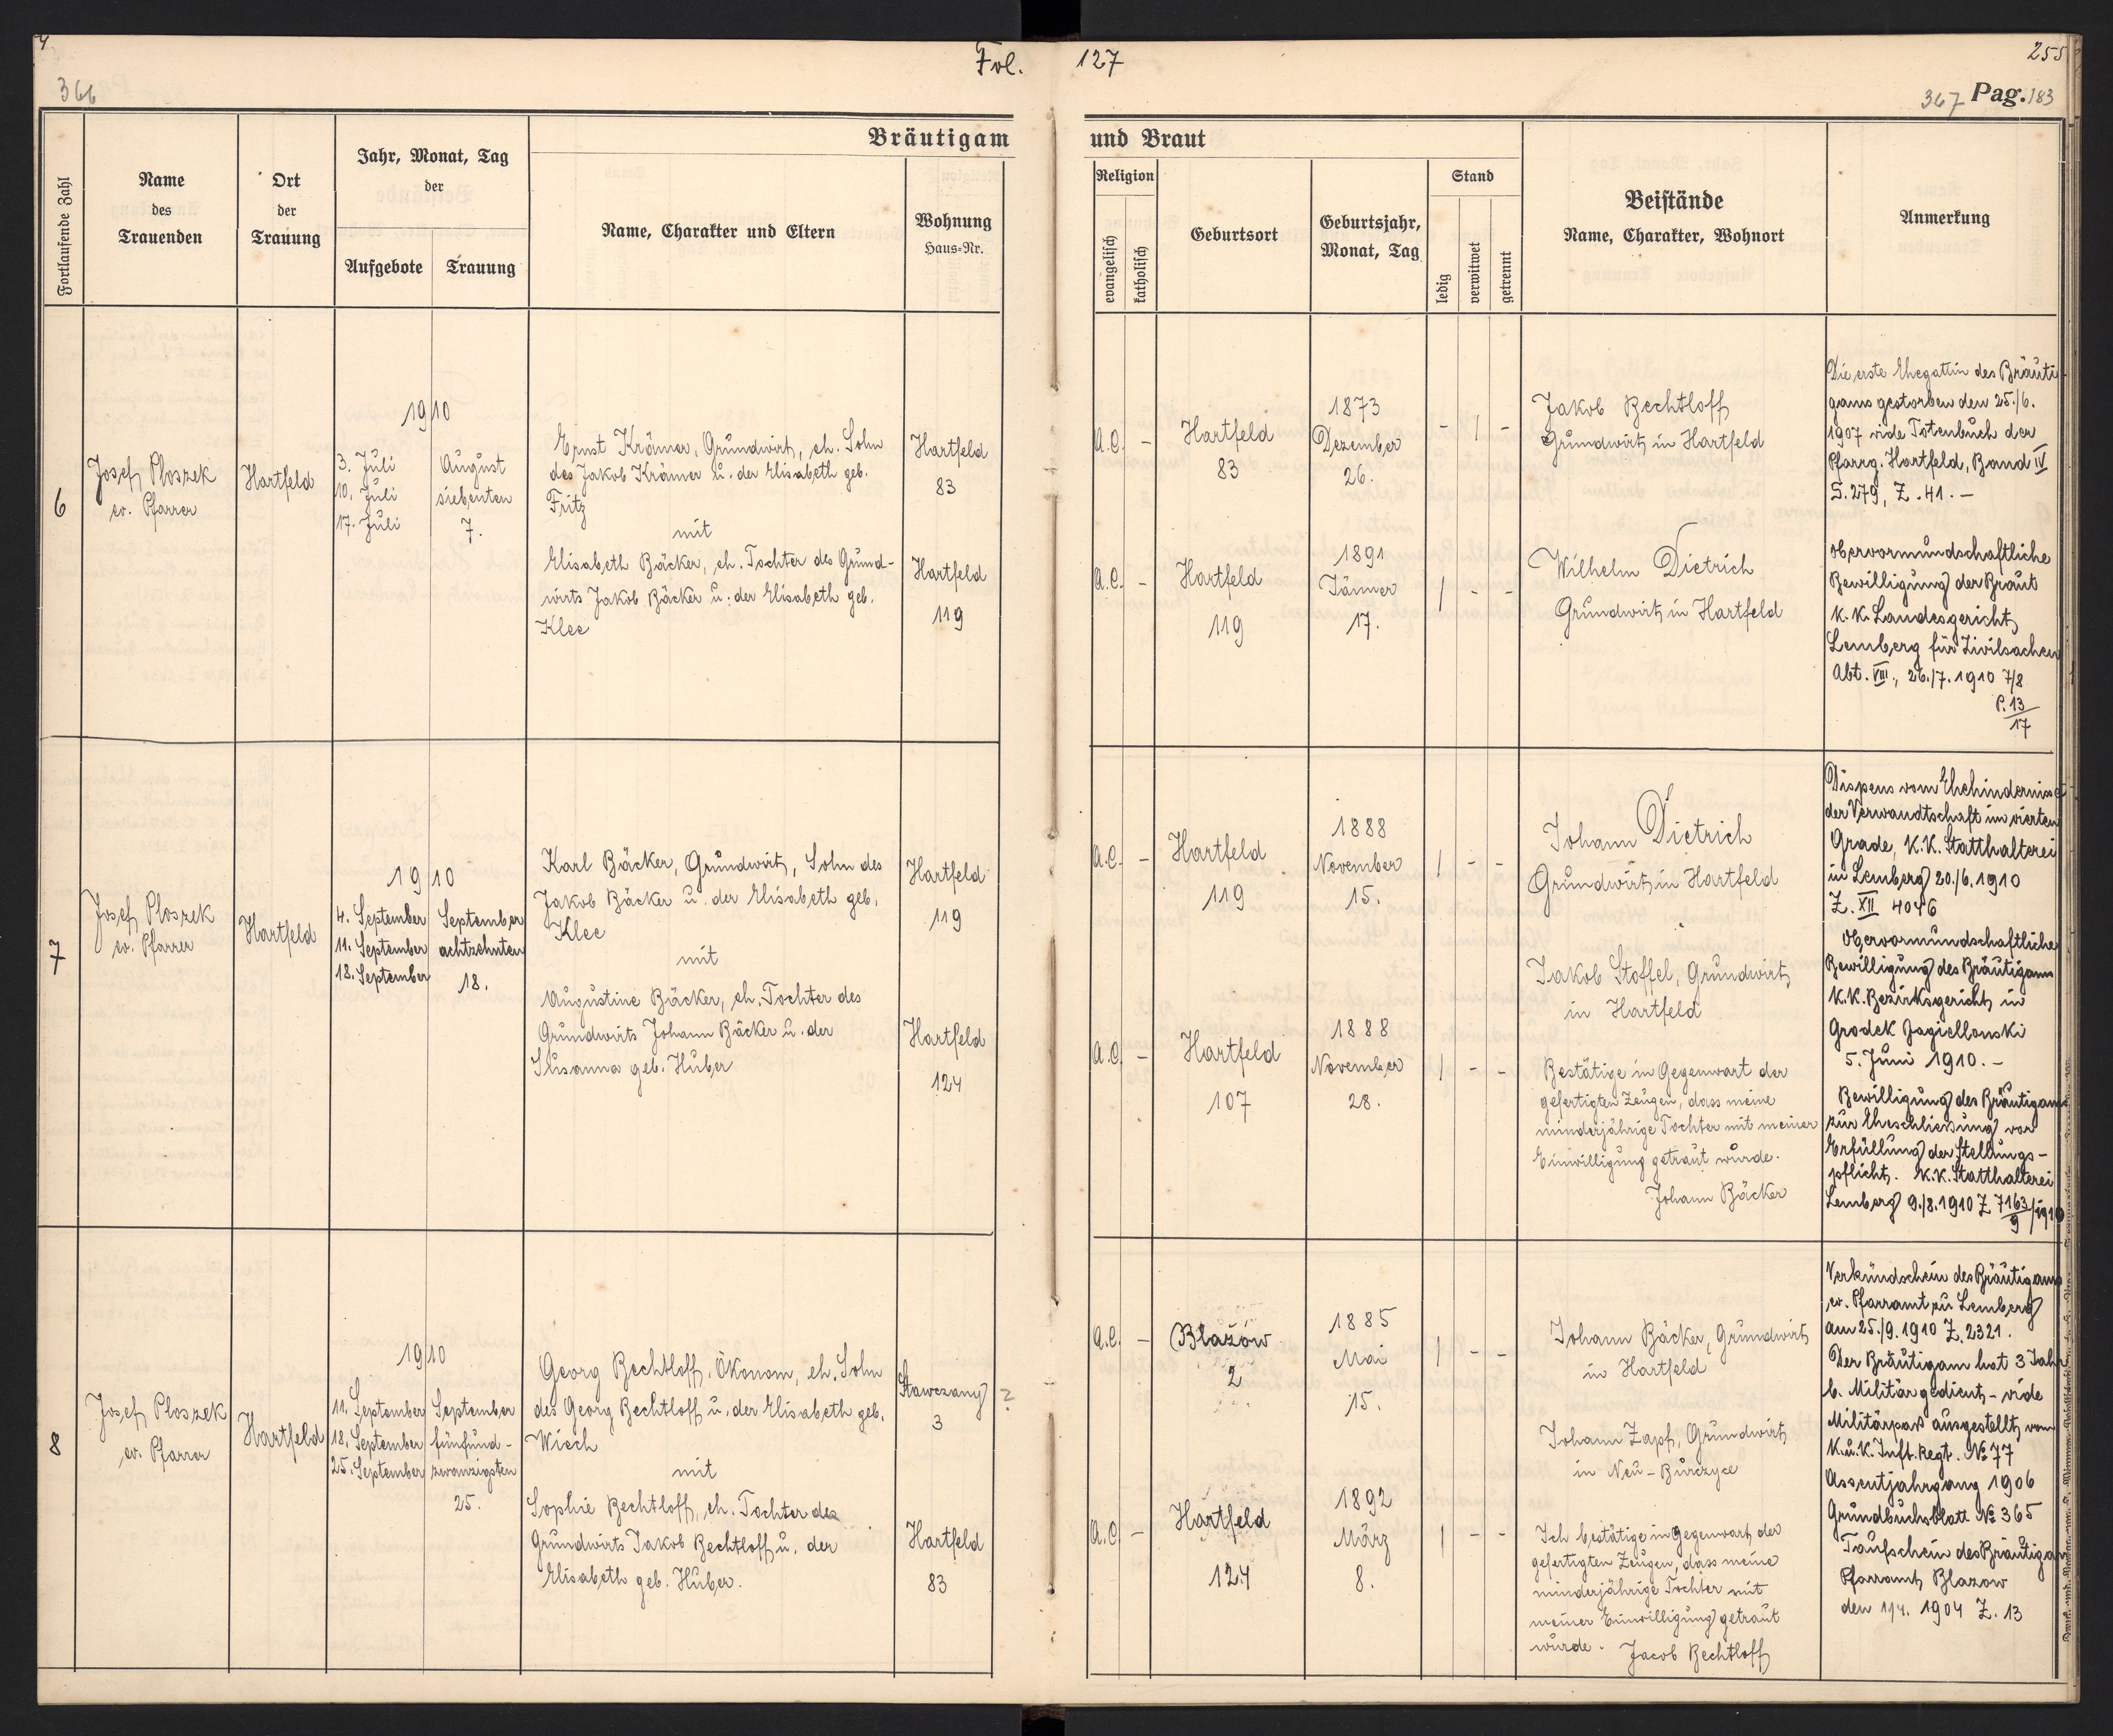 4
Fol. 127
255
366
367 Pag. 183
Bräutigam und Braut
Fortlaufende Zahl
Name
des
Trauenden
Ort
der
Trauung
Jahr, Monat, Tag
der
Aufgebote
Trauung
Name, Charakter und Eltern
Wohnung
Haus-Nr.
Religion
evangelisch
katholisch
Geburtsort
Geburtsjahr,
Monat, Tag
Stand
ledig
verwitwet
getrennt
Beistände
Name, Charakter, Wohnort
Anmerkung
6
Josef Ploszek
ev. Pfarrer
Hartfeld
1910
3. Juli
10. Juli
17. Juli
August
siebenten
7.
Ernst Krämer, Grundwirt, eh. Sohn
des Jakob Krämer u. der Elisabeth geb.
Fritz
mit
Elisabeth Bäcker, eh. Tochter des Grund-
wirts Jakob Bäcker u. der Elisabeth geb.
Klee
Hartfeld
83
Hartfeld
119
A.C. -
Hartfeld
83
1873
Dezember
26.
- / -
A.C. -
Hartfeld
119
1891
Jänner
17.
/ - -
Jakob Bechtloff
Grundwirt in Hartfeld
Wilhelm Dietrich
Grundwirt in Hartfeld
Die erste Ehegattin des Bräuti-
gams gestorben den 25./6.
1907 vide Totenbuch der
Pfarrg. Hartfeld, Band IV
S. 279, Z. 41. -
Obervormundschaftliche
Bewilligung der Braut
K.K. Landesgericht
Lemberg für Zivilsachen
Abt. VIII., 26./7. 1910 7/8
P. 13
17
7
Josef Ploszek
ev. Pfarrer
Hartfeld
1910
4. September
11. September
18. September
September
achtzehnten
18.
Karl Bäcker, Grundwirt, Sohn des
Jakob Bäcker u. der Elisabeth geb.
Klee
mit
Augustine Bäcker, eh. Tochter des
Grundwirts Johann Bäcker u. der
Susanna geb. Huber
Hartfeld
119
Hartfeld
124
A.C. -
Hartfeld
119
1888
November
15.
/ - -
A.C. -
Hartfeld
107
1888
November
28.
/ - -
Johann Dietrich
Grundwirt in Hartfeld
Jakob Stoffel, Grundwirt
in Hartfeld
Bestätige in Gegenwart der
gefertigten Zeugen, dass meine
minderjährige Tochter mit meiner
Einwilligung getraut wurde.
Johann Bäcker
Dispens vom Ehehindernisse
der Verwandtschaft im vierten
Grade, K.K. Statthalterei
in Lemberg 20./6. 1910
Z. XII 4046
Obervormundschaftliche
Bewilligung des Bräutigams
K.K. Bezirksgericht in
Grodek Jagiellonski
5. Juni 1910. -
Bewilligung des Bräutigams
zur Eheschliessung vor
Erfüllung der Stellungs-
pflicht. K.K. Statthalterei
Lemberg 9./8. 1910 Z 7163/1910
9
8
Josef Ploszek
ev. Pfarrer
Hartfeld
1910
11. September
18. September
25. September
September
fünfund-
zwanzigsten
25.
Georg Bechtloff, Ökonom, eh. Sohn
des Georg Bechtloff u. der Elisabeth geb.
Wiech
mit
Sophie Bechtloff, eh. Tochter des
Grundwirts Jakob Bechtloff u. der
Elisabeth geb. Huber.
Stawczany ?
3
Hartfeld
83
A.C. -
Blażow
2
1885
Mai
15.
/ - -
A.C. -
Hartfeld
124
1892
März
8.
/ - -
Johann Bäcker, Grundwirt
in Hartfeld
Johann Zapf, Grundwirt
in Neu-Burczyce
Ich bestätige in Gegenwart der
gefertigten Zeugen, dass meine
minderjährige Tochter mit
meiner Einwilligung getraut
wurde. Jacob Bechtloff
Verkündschein des Bräutigams
ev. Pfarramt zu Lemberg
am 25./9. 1910 Z. 2321.
Der Bräutigam hat 3 Jahr
b. Militär gedient - vide
Militärpass ausgestellt vom
K.u.K. Inft. Regt. No 77
Assentjahrgang 1906
Grundbuchsblatt No 365
Taufschein des Bräutigam
Pfarramt Blazow
den 1/4. 1904 Z. 13